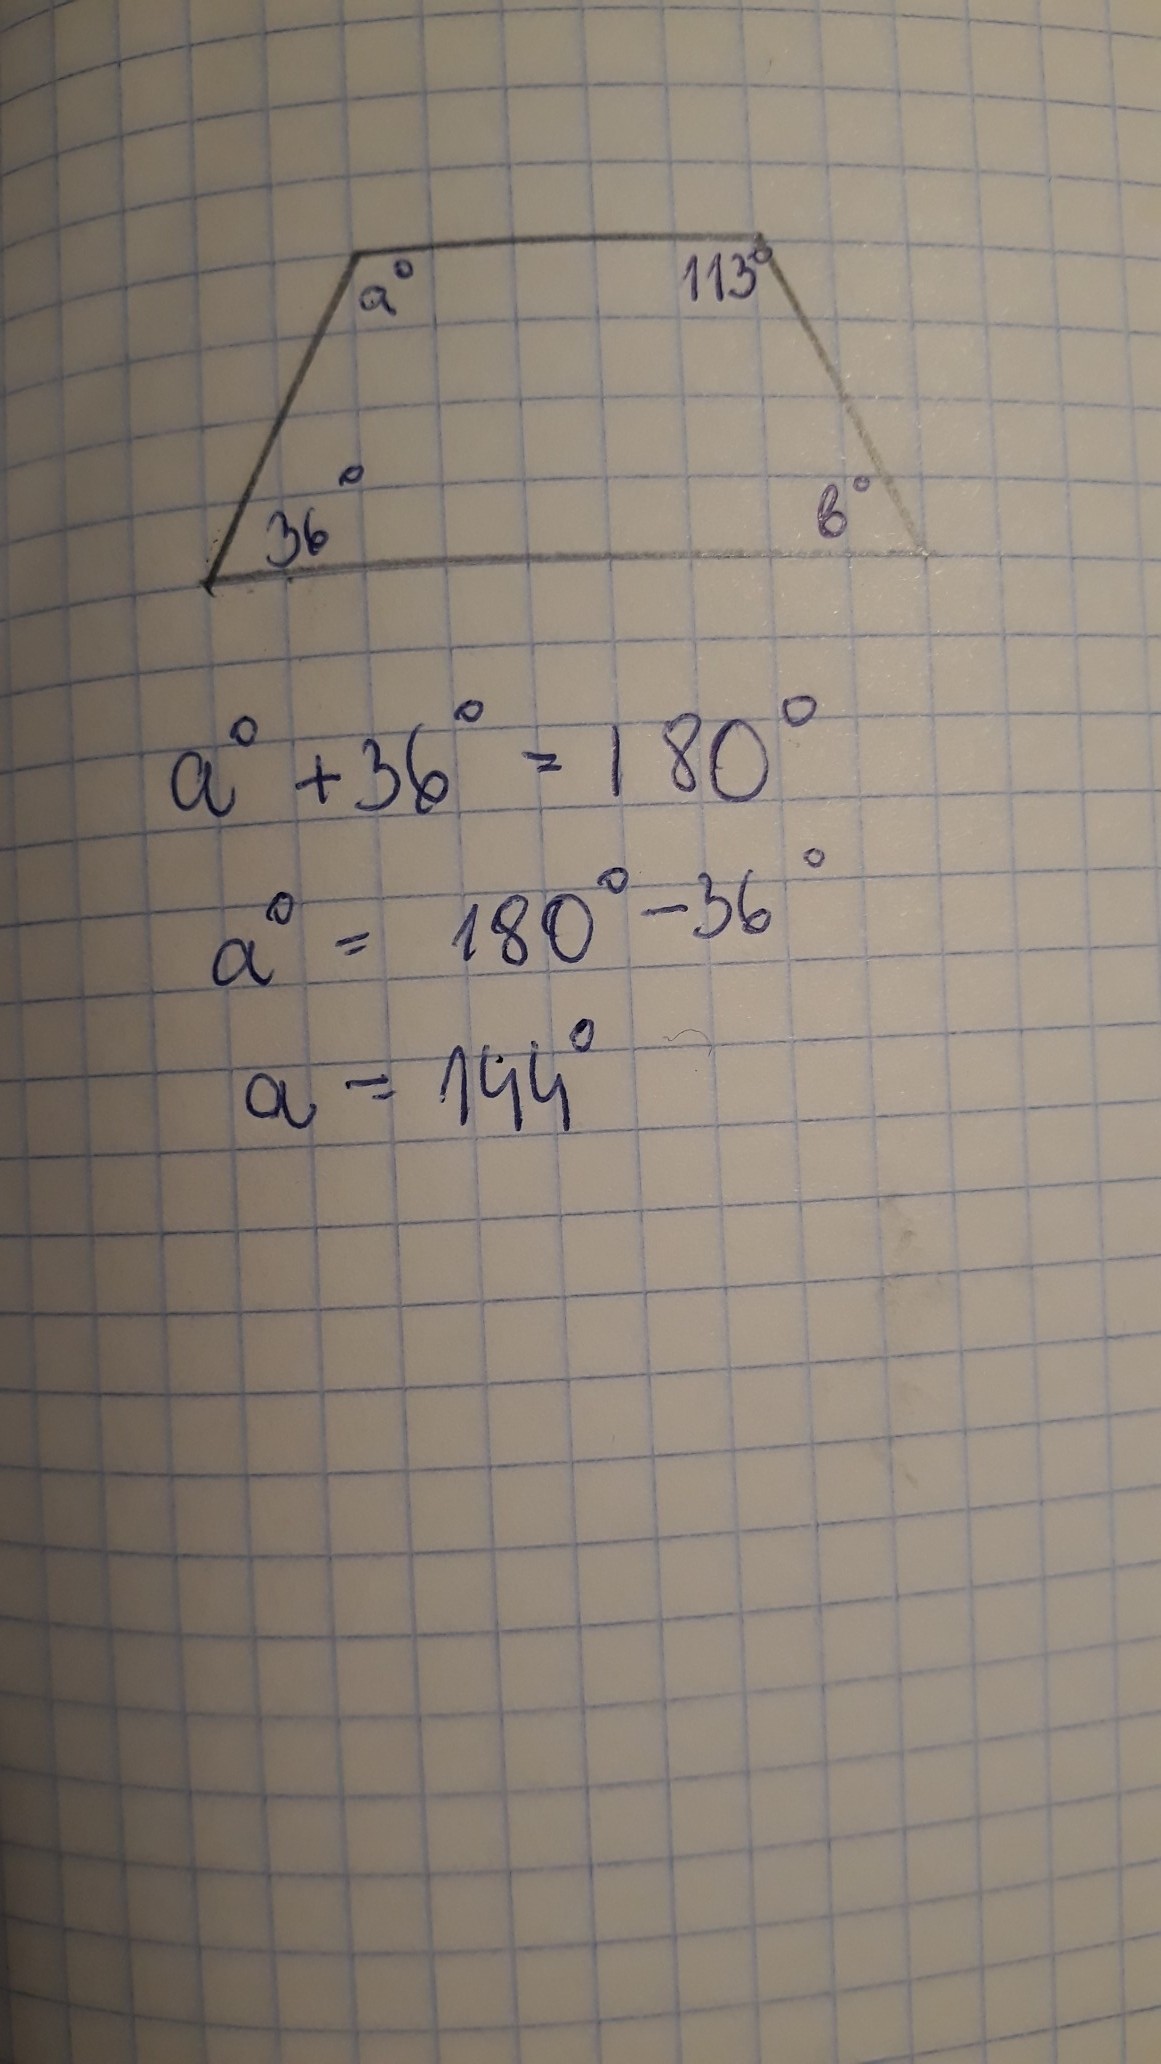 a° 113°
36° в°
a° + 36° = 180°
a° = 180° - 36°
a = 144°